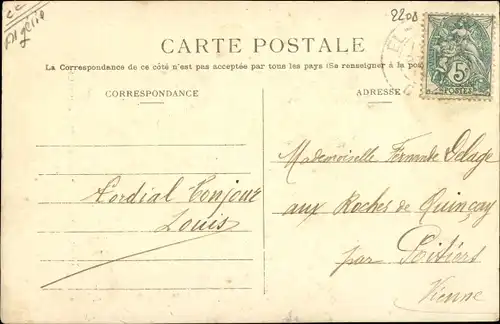 Algérie
2208
CARTE POSTALE
La Correspondance de ce côté n'est pas acceptée par tous les pays (Se renseigner à la poste
CORRESPONDANCE
ADRESSE
5c
POSTES
Mademoiselle Fernande Delage
aux Roches de Quinçay
par Poitiers
Vienne
Cordial bonjour
Louis